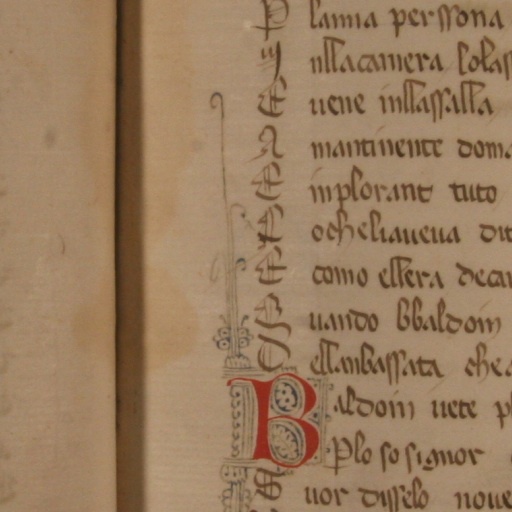 P lanna perssona
I nllacamera solas
E uene inllassalla
A mantinente doma
E inplorant tuto
E ocheliaueua dit
E como ellera deca
Q uando bbaldoin
E llanbassata che
B aldoin uete pl
P lo so signor
E uor disselo noue